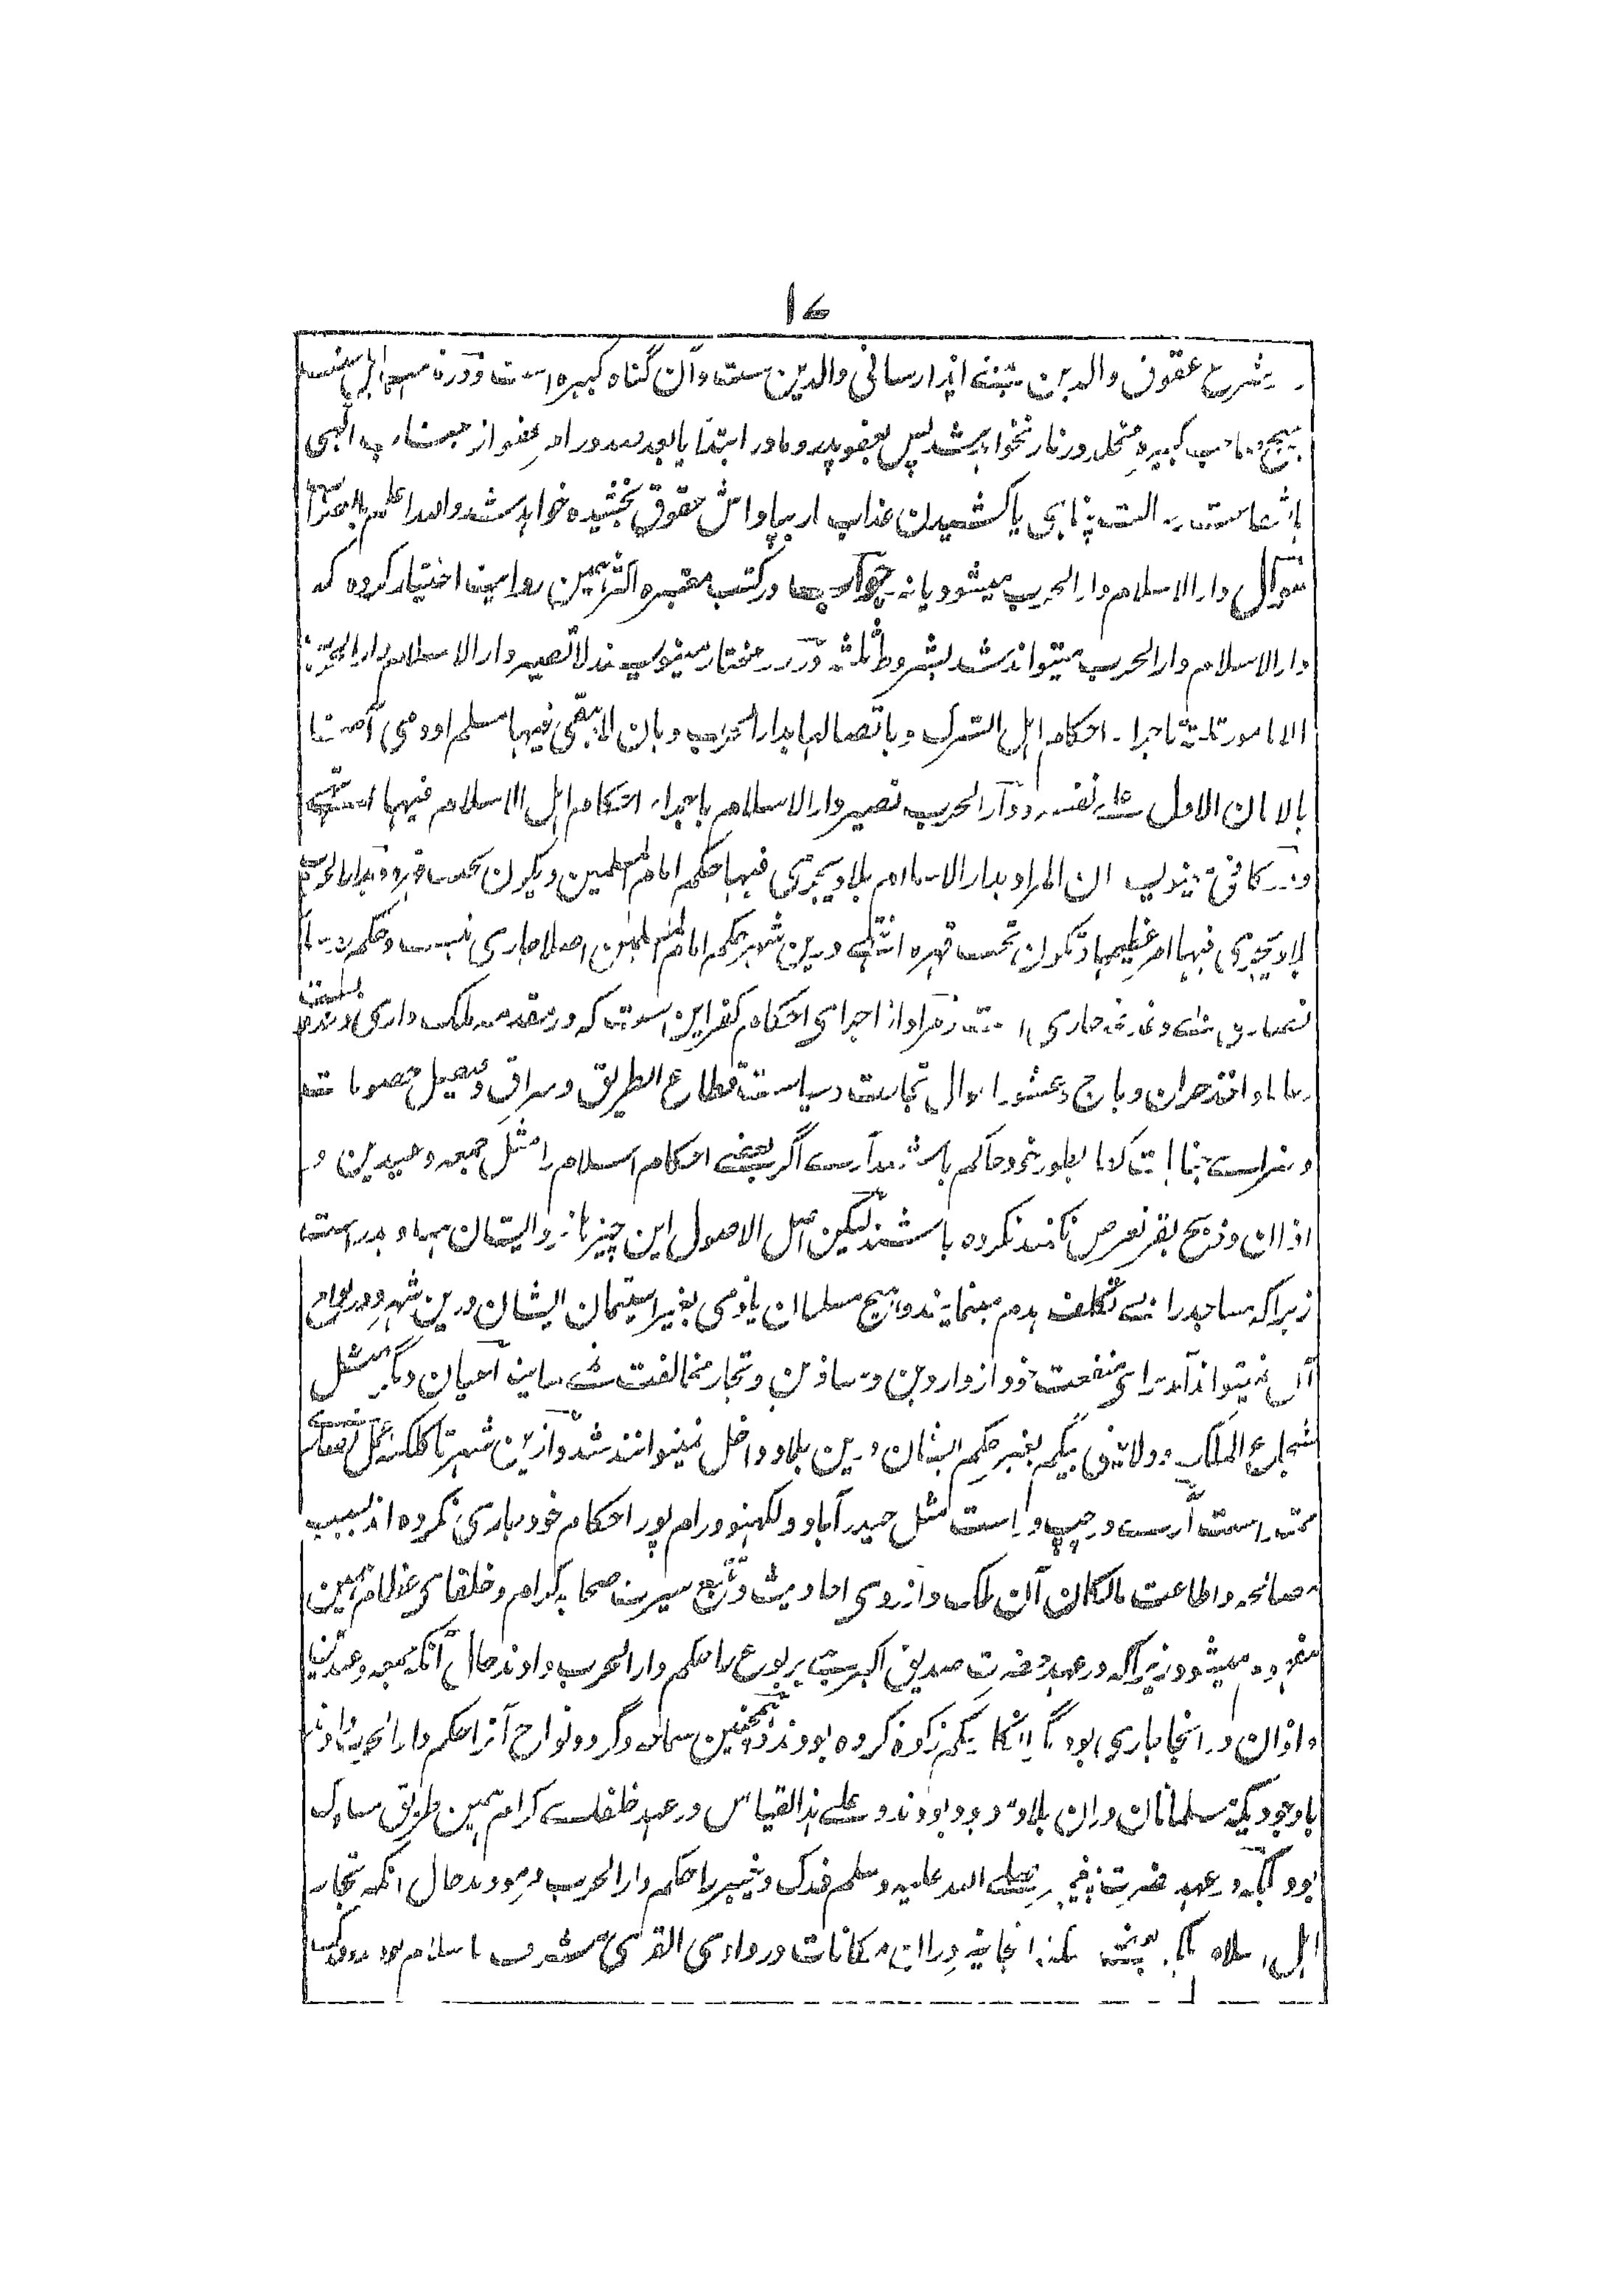 ۱۷
شرع عقوق والدین بمعنے ایذا رسانی والدین ست و آن گناه کبیره است و نزد
هیچ صاحب کبیره مخلد در نار نخواهد شد پس بعفو پدر و مادر ابتداً یا بعد عفو از جناب الهی
یا شفاعت رسالت پناهی یا کشیدن عذاب پاداش حقوق بخشیده خواهد شد والله اعلم
سوال دار الاسلام دار الحرب میشود یا نه جواب در کتب معتبره اکثر همین روایت اختیار کرده که
دار الاسلام دار الحرب میتواند شد بشروط ثلثه در در مختار مینویسند لا تصیر دار الاسلام دار الحرب
الا بامور ثلثة باجراء احکام اهل الشرک و باتصالها بدار الحرب و بان لا یبقی فیها مسلم او ذمی آمنا
بالامان الاول علی نفسه و دار الحرب تصیر دار الاسلام باجراء احکام اهل الاسلام فیها انتهی
و در کافی مینویسد ان المراد بدار الاسلام بلاد یجری فیها حکم امام المسلمین و یکون تحت قهره و بدار الحرب
بلاد یجری فیها امر عظیمها و تکون تحت قهره انتهی درین شهر حکم امام المسلمین اصلا جاری نیست و حکم
نصاری بی دغدغه جاری است و مراد از اجرای احکام کفر این است که در مقدمه ملک داری و بندوبست
رعایا و اخذ خراج و باج و عشور اموال تجارت و سیاست قطاع الطریق و سراق و فیصل خصومات
و سزاے جنایات کفار بطور خود حاکم باشند آرے اگر بعضے احکام اسلام را مثل جمعه و عیدین و
اذان و ذبح بقر تعرض نکنند نکرده باشند لیکن اصل الاصول این چیزها نزد ایشان هباء و هدر است
زیرا که مساجد را بے تکلف هدم مینمایند و هیچ مسلمان یا ذمی بغیر استیمان ایشان درین شهر و در نواح
آن نمیتواند آمد برای منفعت خود از واردین و مسافرین و تجار مخالفت نمے نمایند اعیان دیگر مثل
شجاع الملک و ولایتی بیگم بغیر حکم ایشان درین بلاد داخل نمیتوانند شد و ازین شهر تا کلکته عمل نصاری
ممتد است آرے در چپ و راست مثل حیدرآباد و لکهنو و رام پور احکام خود جاری نکرده اند بسبب
مصالحه و اطاعت مالکان آن ملک و از روی احادیث و تتبع سیرت صحابه کرام و خلفای عظام همین
مفهوم میشود زیرا که در عهد حضرت صدیق اکبر بنی یربوع را حکم دار الحرب دادند حال آنکه جمعه و عیدین
و اذان در انجا جاری بود مگر انکار حکم زکوة کرده بودند و همچنین یمامه و گرد و نواح آنرا حکم دار الحرب دادند
باوجودیکه مسلمانان دران بلاد موجود بودند و علے هذا القیاس در عهد خلفاے کرام همین طریق مسلوک
بود بلکه در عهد حضرت پیغمبر صلے الله علیه وسلم فدک و خیبر را حکم دار الحرب فرمودند حال آنکه تجار
اهل اسلام بلکه بعضے سکنه انجا نیز دران مکانات و در وادی القری مشرف باسلام بودند